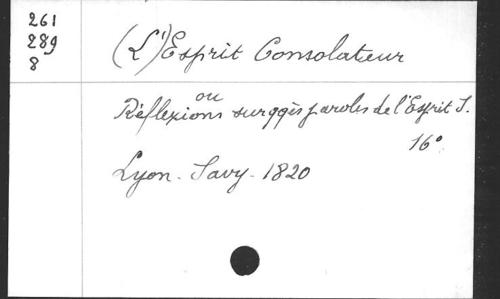 261
289
8
(L')Esprit Consolateur
ou
Réflexions sur qqès paroles de l'Esprit S.
16°
Lyon - Savy - 1820